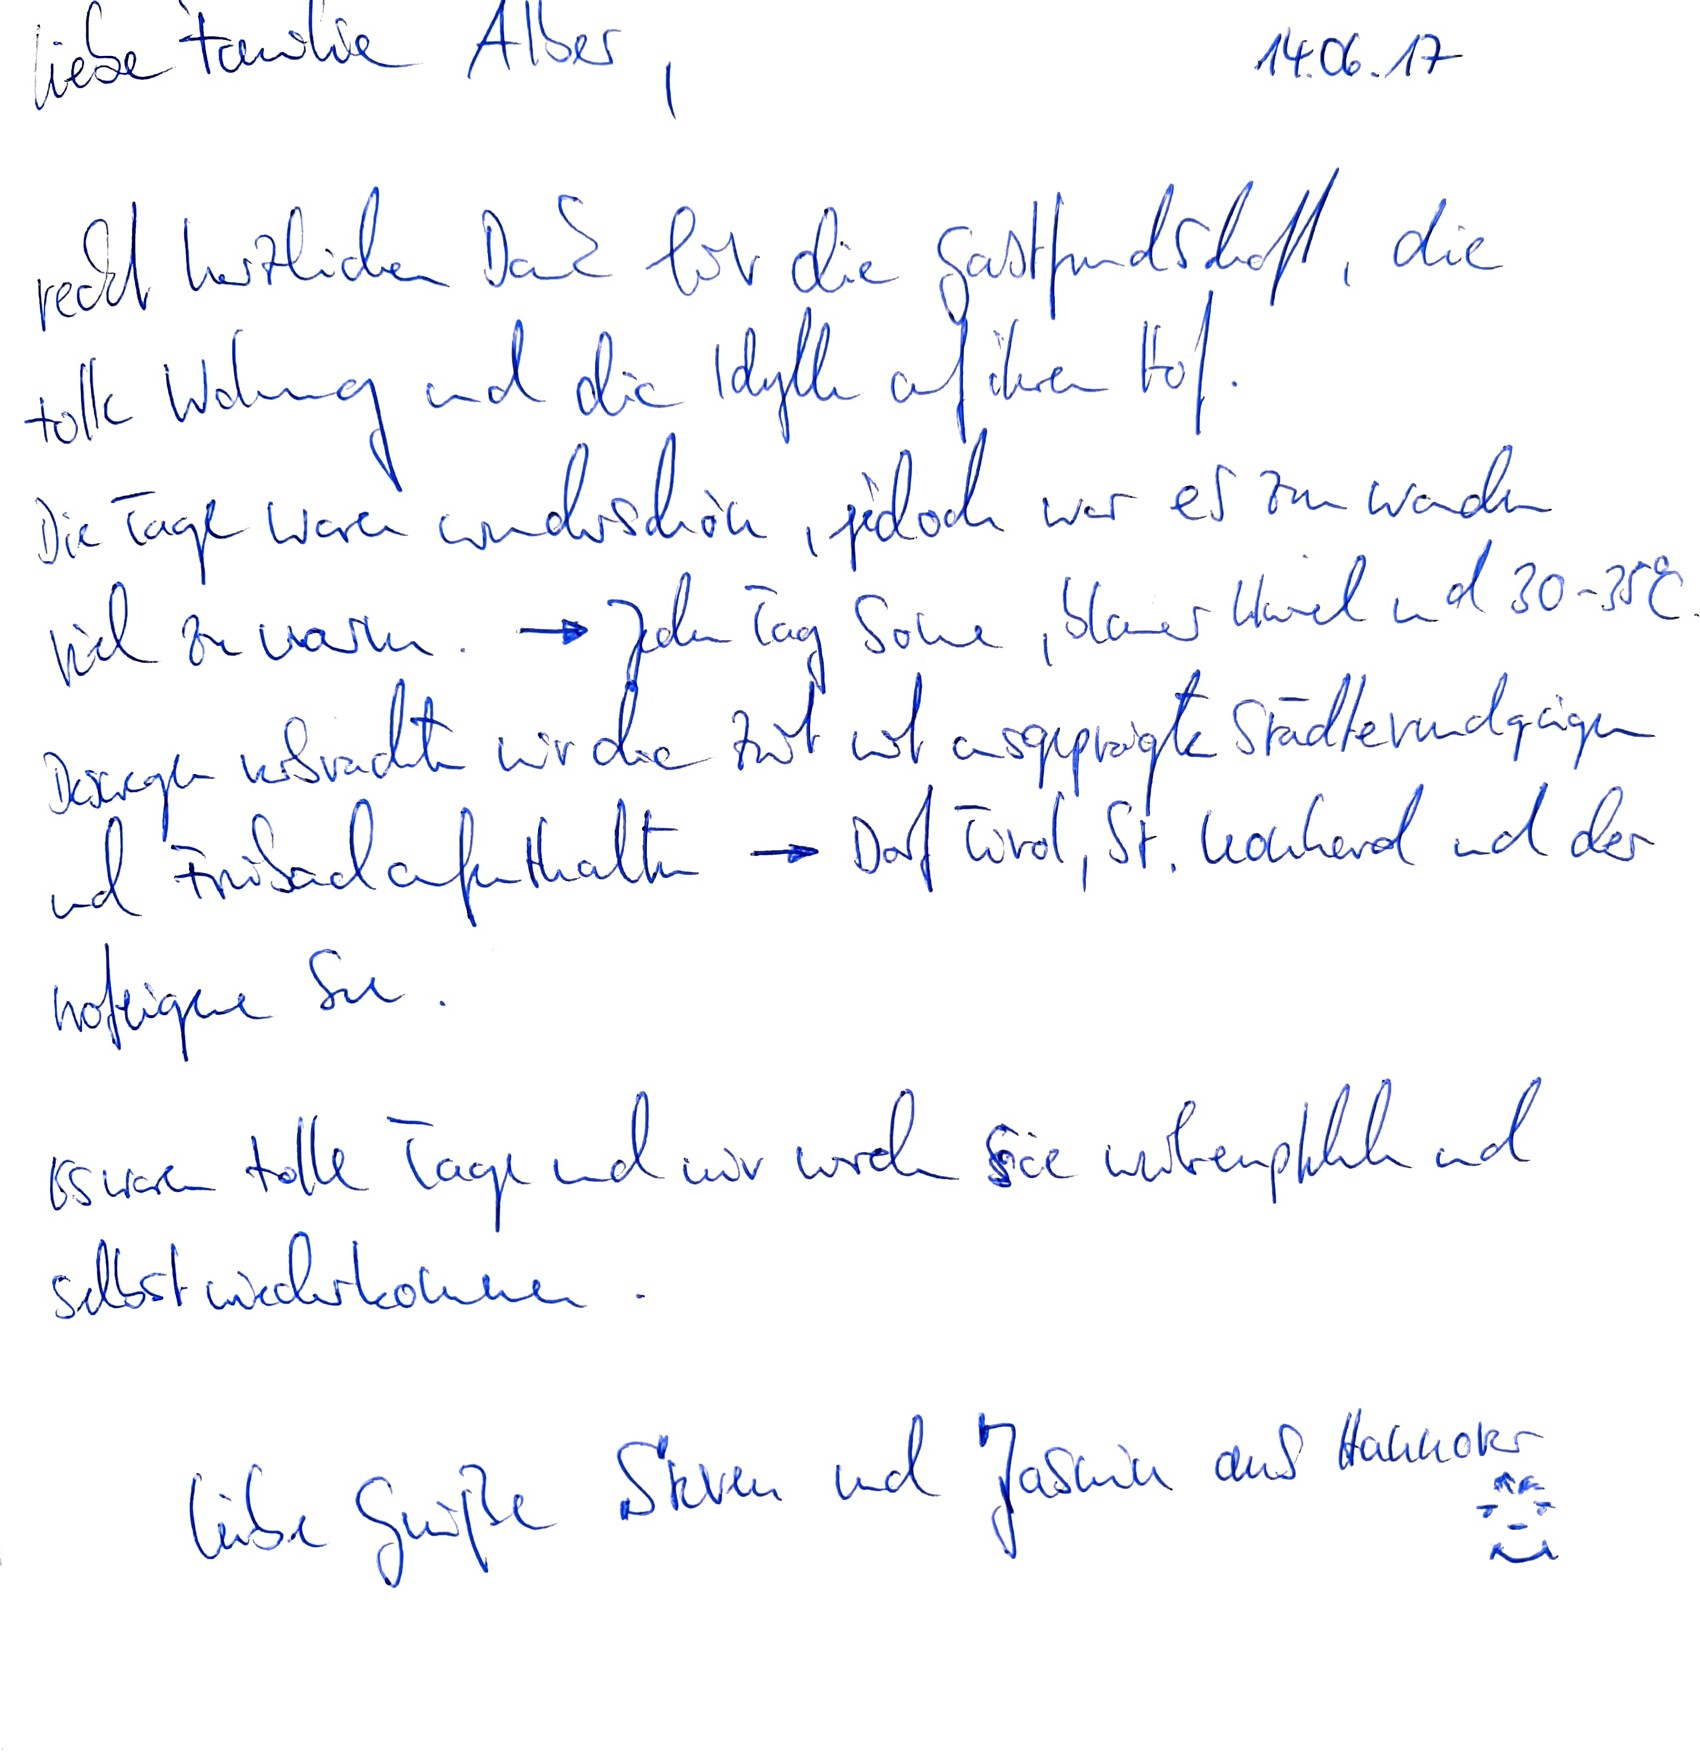 Liebe Familie Alber, 14.06.17
recht herzlichen Dank für die Gastfreundschaft, die
tolle Wohnung und die Idylle auf ihren Hof.
Die Tage waren wunderschön, jedoch war es zum wandern
viel zu warm. → Jeden Tag Sonne, blauer Himmel und 30-35°C.
Deswegen verbrachten wir die Zeit mit ausgeprägte Städterundgängen
und Freibadaufenthalten → Dorf Tirol, St. Leonhard und der
hofeigene See.
Es waren tolle Tage und wir werden Sie weiterempfehlen und
selbst wiederkommen.
Liebe Grüße Steven und Jasmin aus Hannover